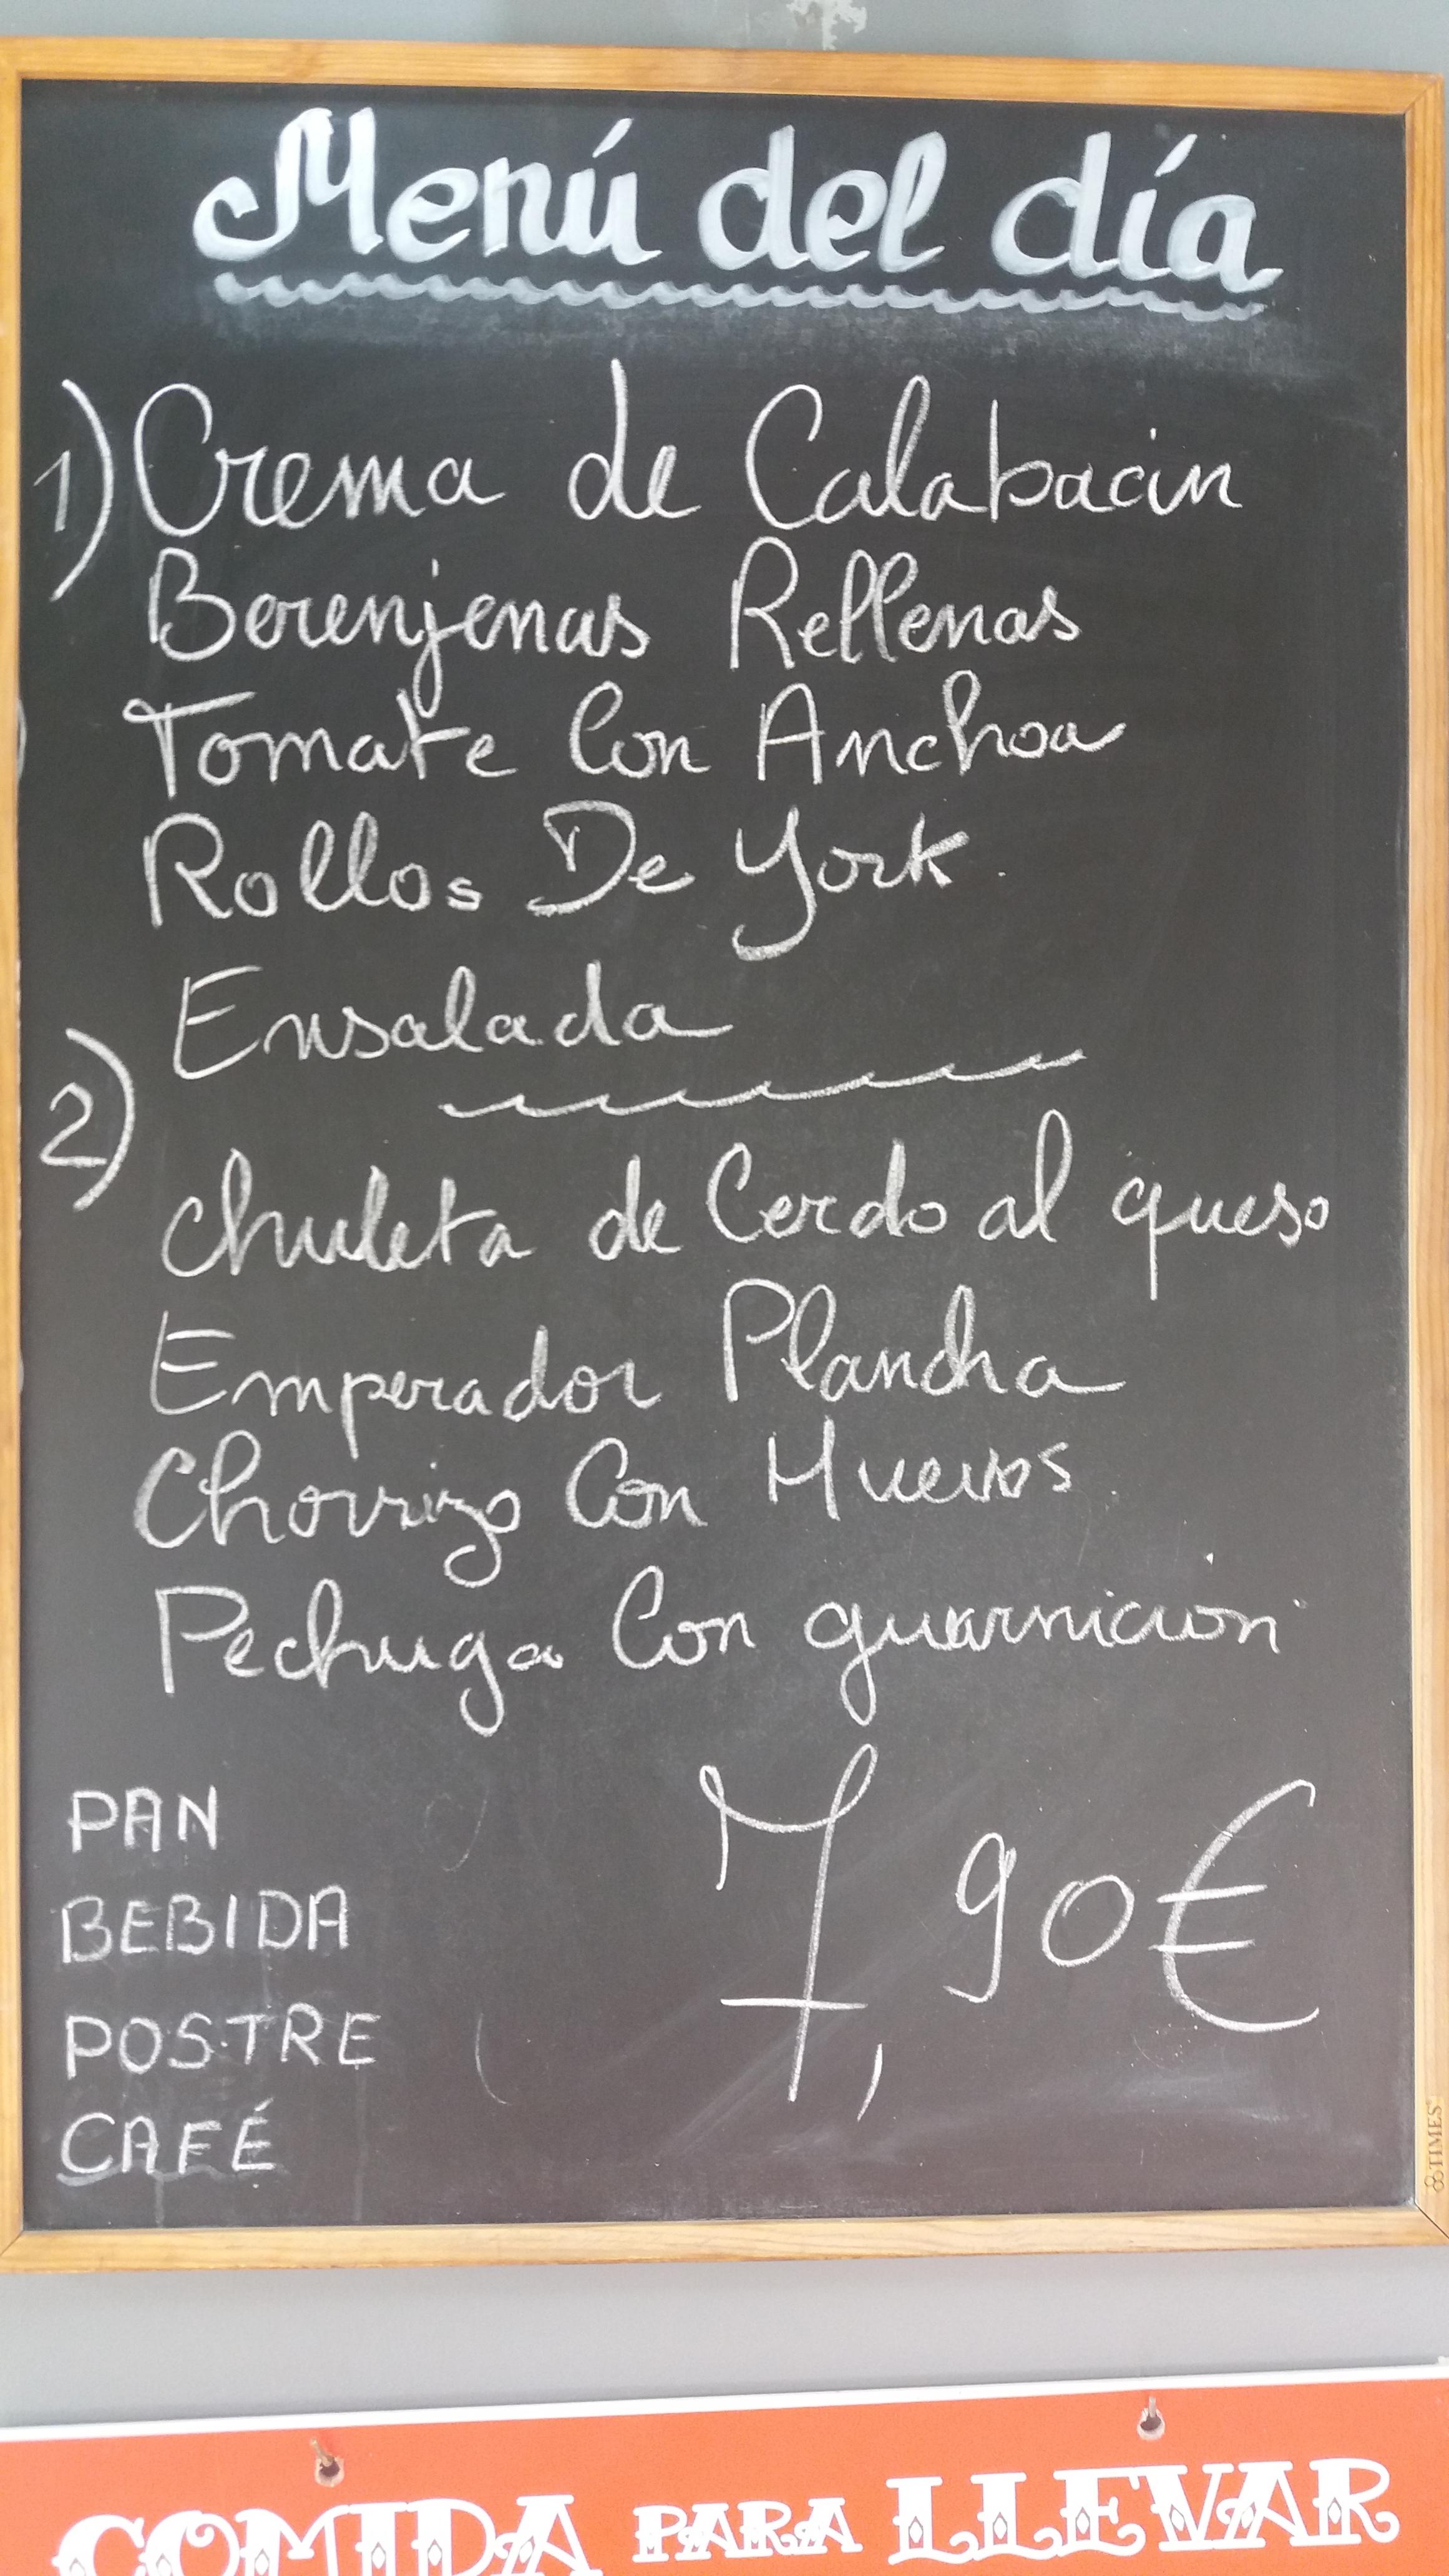 Menú del día
1) Crema de Calabacin
Berenjenas Rellenas
Tomate Con Anchoa
Rollos De York
Ensalada
2)
Chuleta de Cerdo al queso
Emperador Plancha
Chorrizo Con Huevos
Pechuga Con guarnicion
PAN
BEBIDA
POSTRE
CAFÉ
7,90€
TIMES
COMIDA PARA LLEVAR